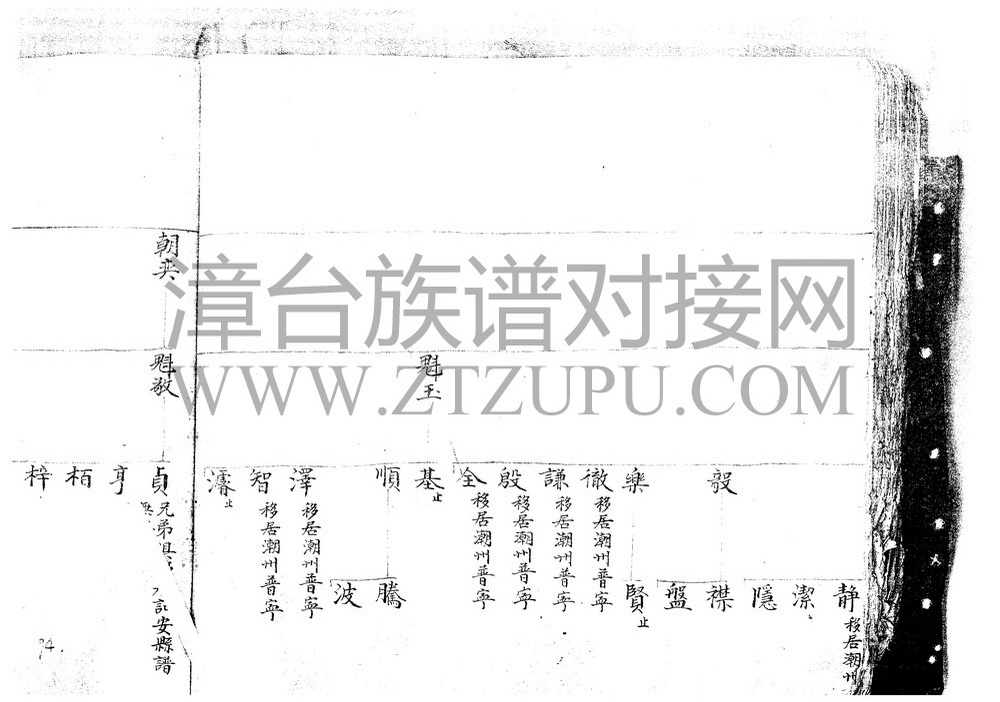 静 移居潮州
潔
隱
毅
襟
盤
樂
賢 止
徹 移居潮州普寧
謙 移居潮州普寧
殷 移居潮州普寧
全 移居潮州普寧
魁玉
基 止
順
騰
波
澤 移居潮州普寧
智 移居潮州普寧
濬 止
朝英
魁敬
貞 兄弟
安縣譜
亨
栢
梓
漳台族谱对接网
WWW.ZTZUPU.COM